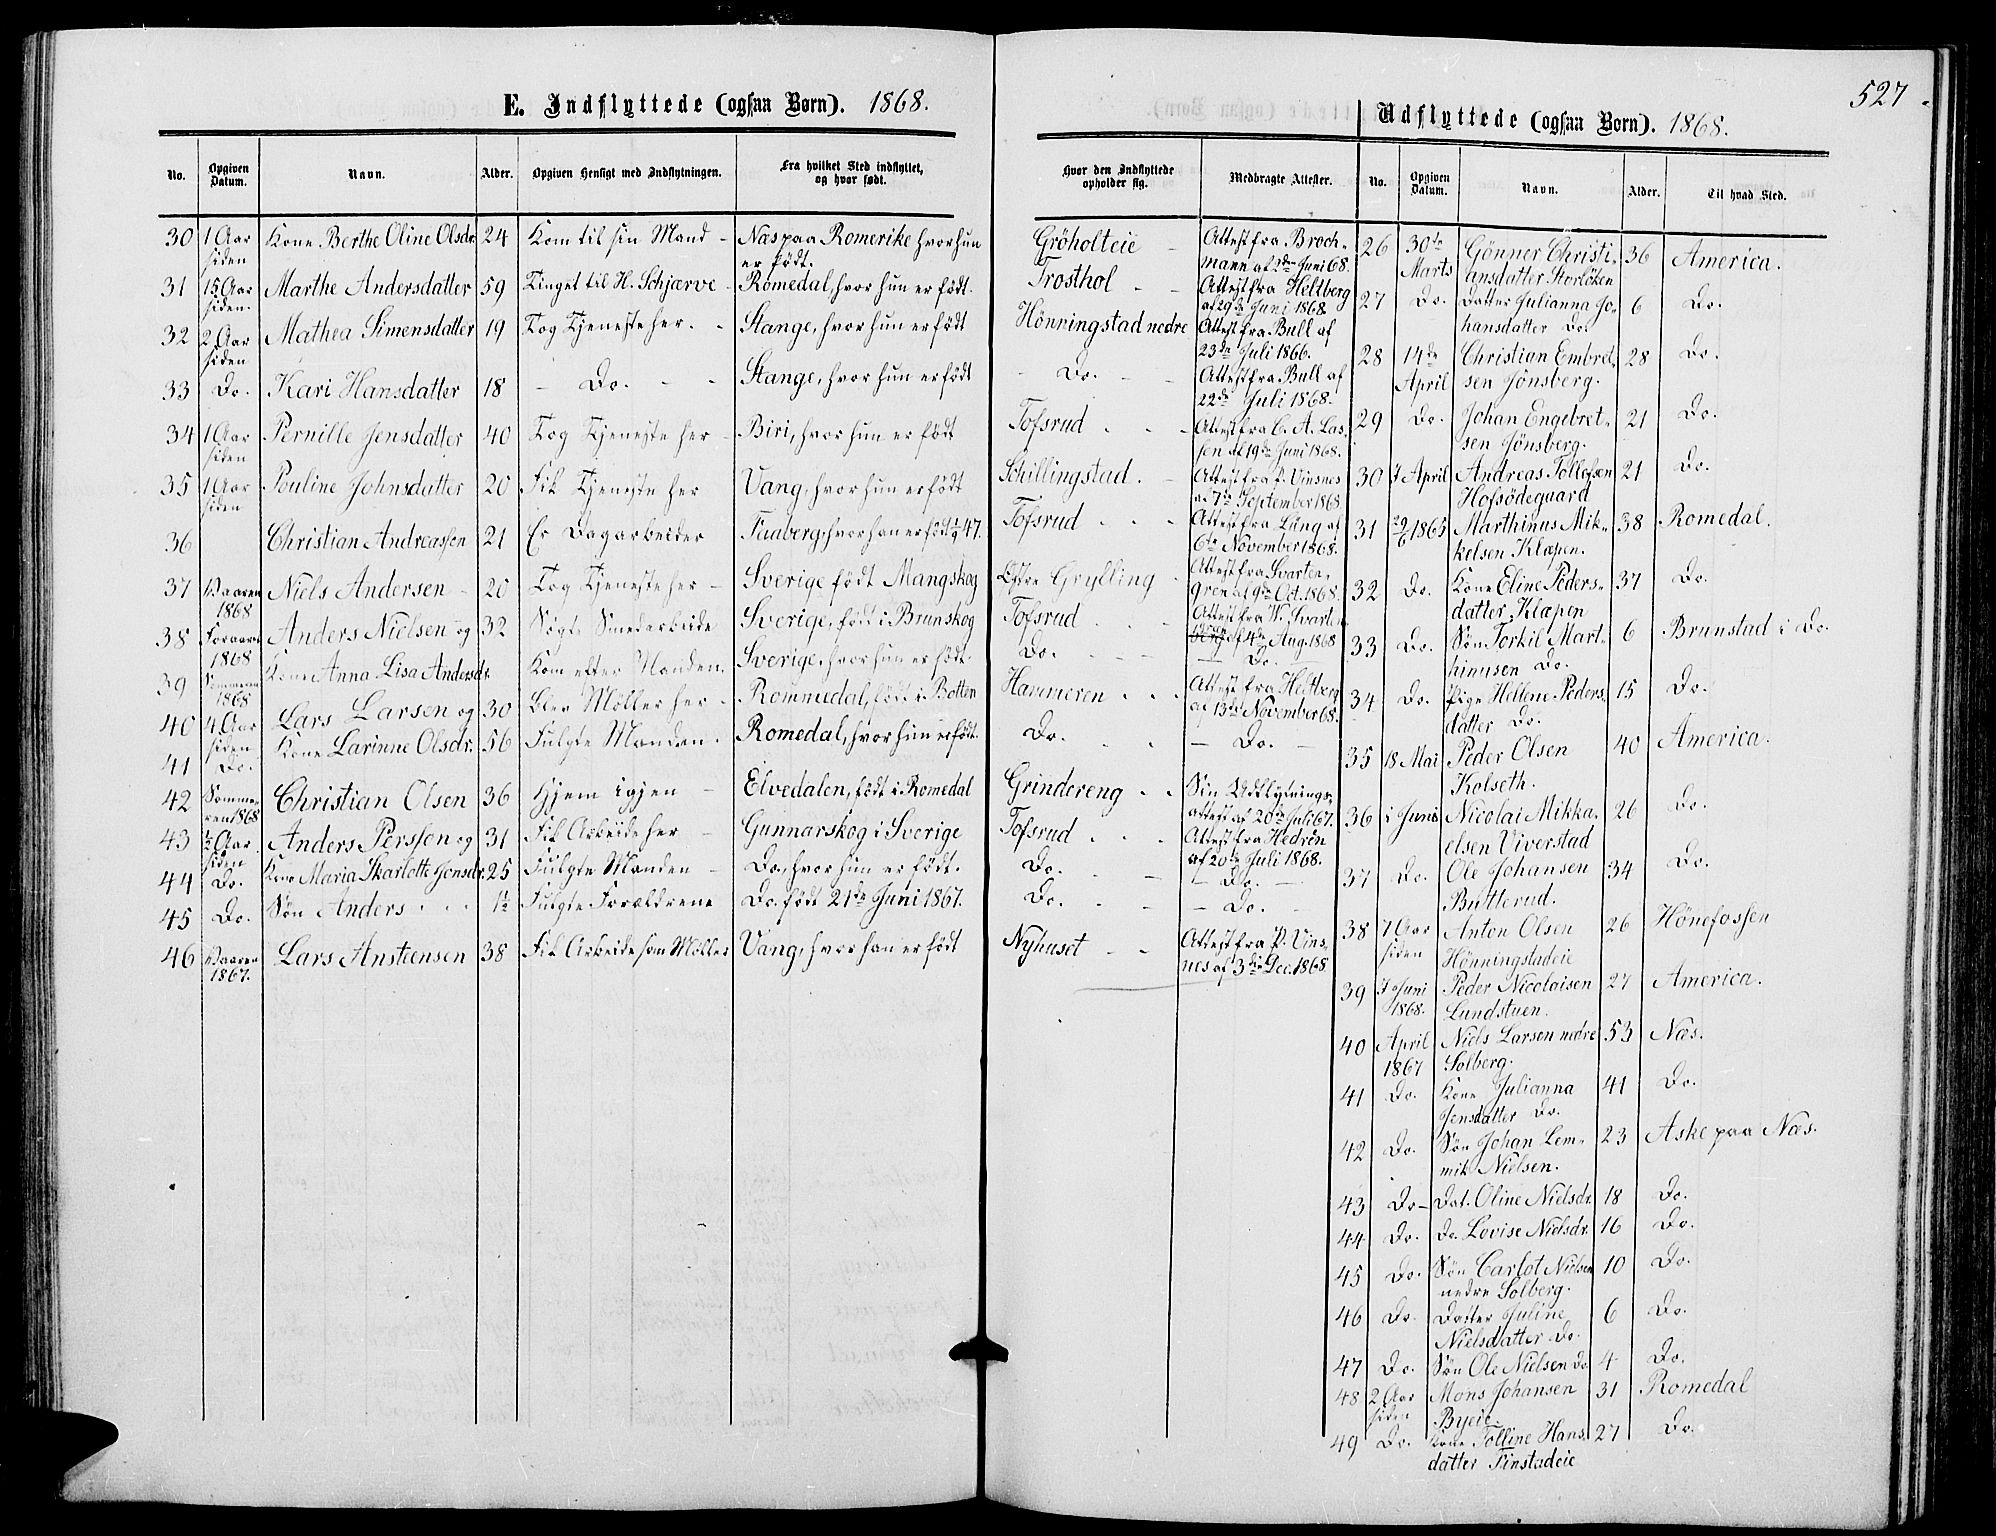 E. Indflyttede (ogsaa Børn). 1868.
No. Opgiven Datum. Navn. Alder. Opgiven Hensigt med Indflytningen. Fra hvilket Sted indflyttet, og hvor født.
30 1 Aar siden Kone Berthe Oline Olsdr. 24 Kom til sin Mand - Næs paa Romerike hvor hun er født.
31 15 Aar siden. Marthe Andersdatter 59 Tinget til H. Schjærve - Romedal, hvor hun er født.
32 2 Aar siden Mathea Simensdatter 19 Tog Tjeneste her. - Stange, hvor hun er født
33 Do. Kari Hansdatter 18 - Do. - - Stange, hvor hun er født
34 1 Aar siden Pernille Jensdatter 40 Tog Tjeneste her - Biri, hvor hun er født
35 1 Aar siden Pouline Johnsdatter 20 Fik Tjeneste her Vang, hvor hun er født
36 Christian Andreassen 21 Er Dagarbeider Faaberg, hvor han er født 47.
37 Vaaren 1868 Niels Andersen - 20 Tog Tjeneste her - Sverige født Mangskog
38 Foraaret 1868 Anders Nielsen og 32 Søgte Smedarbeide Sverige, født i Brunskog
39 Sommeren 1868 Kone Anna Lisa Andersdr. Kom efter Manden. Sverige, hvor hun er født.
40 4 Aar siden Lars Larsen og 30 Blev Möller her - Rommedal, født i Botten
41 Do. Kone Larinne Olsdr. 56 Fulgte Manden. Romedal, hvor hun er født.
42 Sommeren 1868 Christian Olsen 36 Hjem igjen - Elvedalen, født i Romedal
43 ½ Aar siden Anders Perssen og 31 Fik Arbeide her - Gunnarskog i Sverige
44 Do. Kone Maria Skarlotte Jonsdr. 25 Fulgte Manden - Do., hvor hun er født.
45 Do. Søn Anders 1½ Fulgte Forældrene Do. født 21de Juni 1867.
46 Vaaren 1867. Lars Ansteensen 38 Fik Arbeide som Möller Vang, hvor han er født
527.
Udflyttede (ogsaa Børn). 1868.
Hvor den Indflyttede opholder sig. Medbragte Attester. No. Opgiven Datum. Navn. Alder. Til hvad Sted.
Gröholteie - Attest fra Brochmann af 2den Juni 68.
Trosthol - - Attest fra Heltberg af 29de Juni 1868
Hönningstad nedre Attest fra Bull af 23de Juli 1866.
- Do. - - Attest fra Bull af 22de Juli 1868.
Tofsrud - Attest fra C. A. Lassen af 19de Juni 1868.
Schillingstad. - Attest fra P. Vinsnes af 7de September 1868
Tofsrud Attest fra Ling af 6te November 1868.
Østre Grylling Attest fra Svartengren af 9de Oct. 1868.
Tofsrud Attest fra W. Svartengren af 4de Aug. 1868
Do. - Do. -
Hammeren Attest fra Heltberg af 13de November 68.
Do. - Do. -
Grindereng Sin Udflytningsattest af 20de Juli 67.
Tofsrud Attest fra Hedrén af 20de Juli 1868.
Do. - Do. -
Do. - Do. -
Nyhuset - Attest fra P. Vinsnes af 3die Dec. 1868
26 30te Marts Gönner Christiansdatter Storlöken 36 America.
27 Do. Datter Julianna Johansdatter Do. 6 Do.
28 14de April Christian Embretsen Jönsberg. 28 Do.
29 Do. Johan Engebretsen Jönsberg. 21 Do.
30 I April Andreas Tollefsen Hofsödegaard 21 Do.
31 1865 Marthinus Mikkelsen Klæpen. 38 Romedal.
32 Do. Kone Eline Pedersdatter Klæpen 37 Do.
33 Do. Søn Torkil Marthinusen Do. 6 Brunstad i Do.
34 Do. Pige Hellene Pedersdatter Do. 15 Do.
35 18 Mai Peder Olsen Kolseth. 40 America.
36 i Juni Nicolai Mikkaelsen Viverstad 26 Do.
37 Do. Ole Johansen Butterud. 34 Do.
38 7 Aar siden Anton Olsen Hönningstadeie 26 Hönefossen
39 I Juni 1868. Peder Nicolaisen Lundstuen. 27 America.
40 April 1867 Niels Larsen nedre Solberg. 53 Næs.
41 Do. Kone Julianna Jensdatter Do. 41 Do.
42 Do. Søn Johan Lemmik Nielsen. 23 Aske paa Næs.
43 Do - Dat. Oline Nielsdr. 18 Do.
44 Do. Do. Lovise Nielsdr. 16 Do.
45 Do. Søn Carlot Nielsen nedre Solberg. 10 Do.
46 Do. Datter Juline Nielsdatter Do. 6 Do.
47 Do. Søn Ole Nielsen Do. 4 Do.
48 2 Aar siden Mons Johansen Byeie. 31 Romedal
49 Do. Kone Tolline Hansdatter Finstadeie 27 Do.